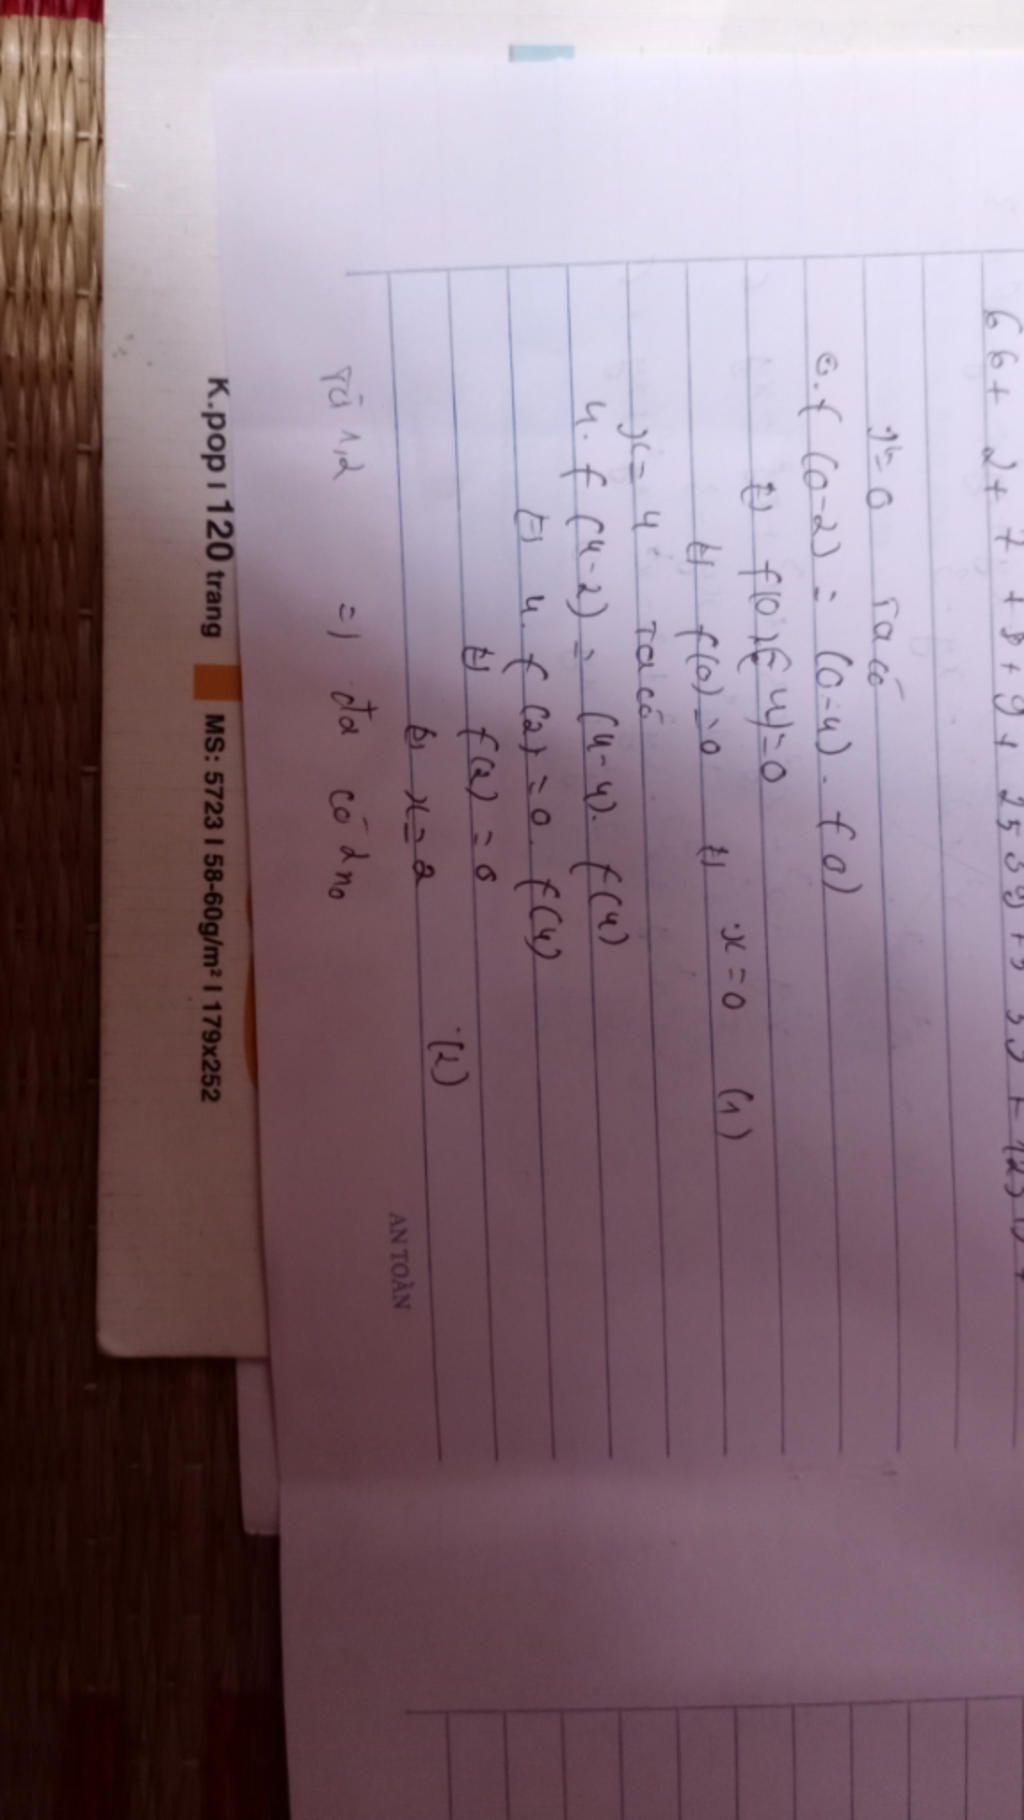 66+ 2+ 7 + 8 + 9 + 2539 +
x=0 Ta có
0.f (0-2) = (0-4). f 0)
f(0).(-4)=0
f(0)=0 x=0 (1)
x= 4 Ta có
4. f (4-2) = (4-4). f(4)
4. f (2) =0. f(4)
f(2) = 0
x=2 (2)
Từ 1,2 =) đa có 2 no
AN TOÀN
K.pop I 120 trang MS: 5723 I 58-60g/m² I 179x252